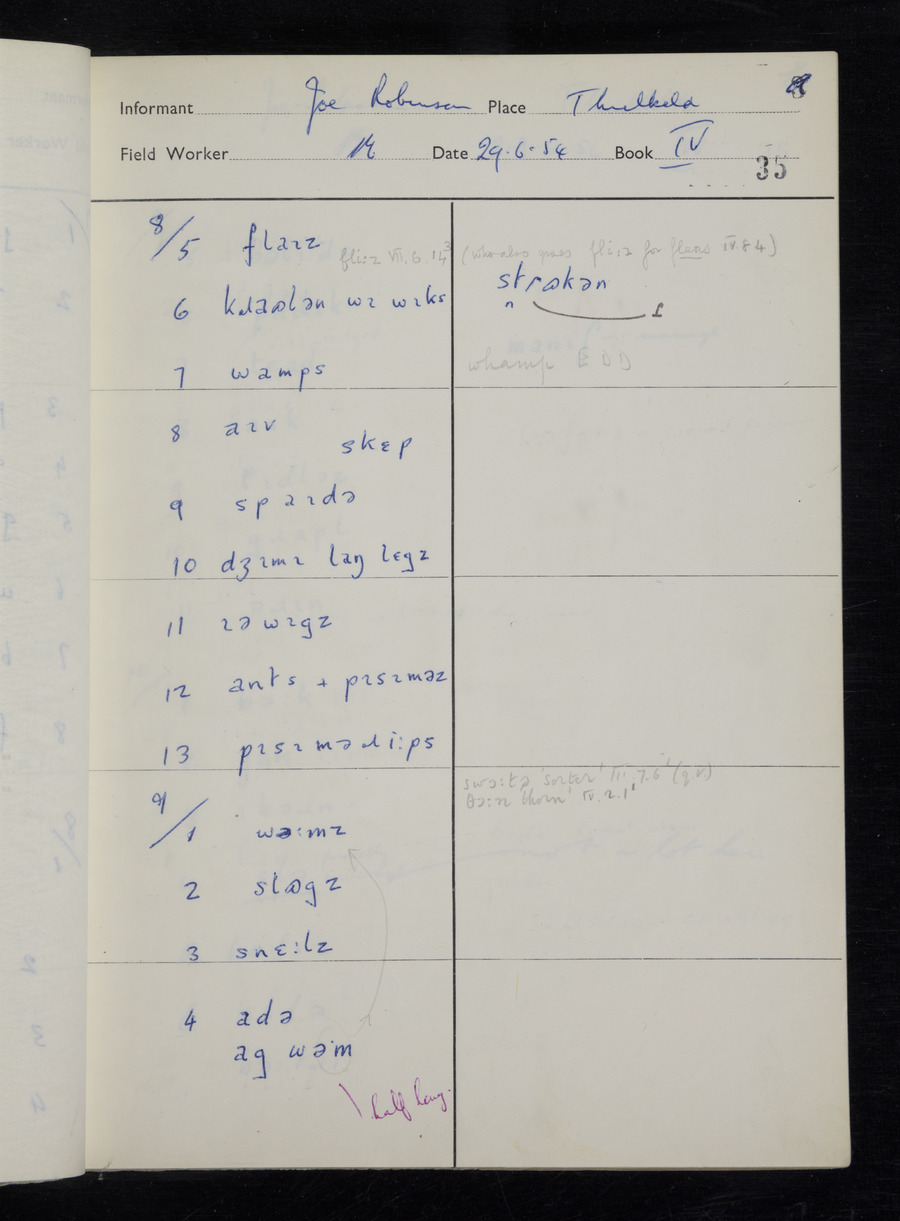 Informant Joe Robinson Place Threlkeld
Field Worker Date 29.6.54 Book IV
35
8/5 flaɪz fli:z VII.6.14³ (who also gives fli:z for fleas IV.8.4)
6 kɹaʊlən wɪ wɪks strʊkən
7 wamps whamp EDD
8 aɪv skɛp
9 spaɪdə
10 dʒɪmɪ laŋ lɛgz
11 ɪəwɪgz
12 ants + pɪsɪməz
13 pɪsɪməɹi:ps
swə:tə 'sorter' III.7.6' (q v)
θə:n 'thorn' IV.2.1'
9/1 wə:mz
2 slʊgz
3 snɛ:lz
4 adə
ag wə·m
half long.